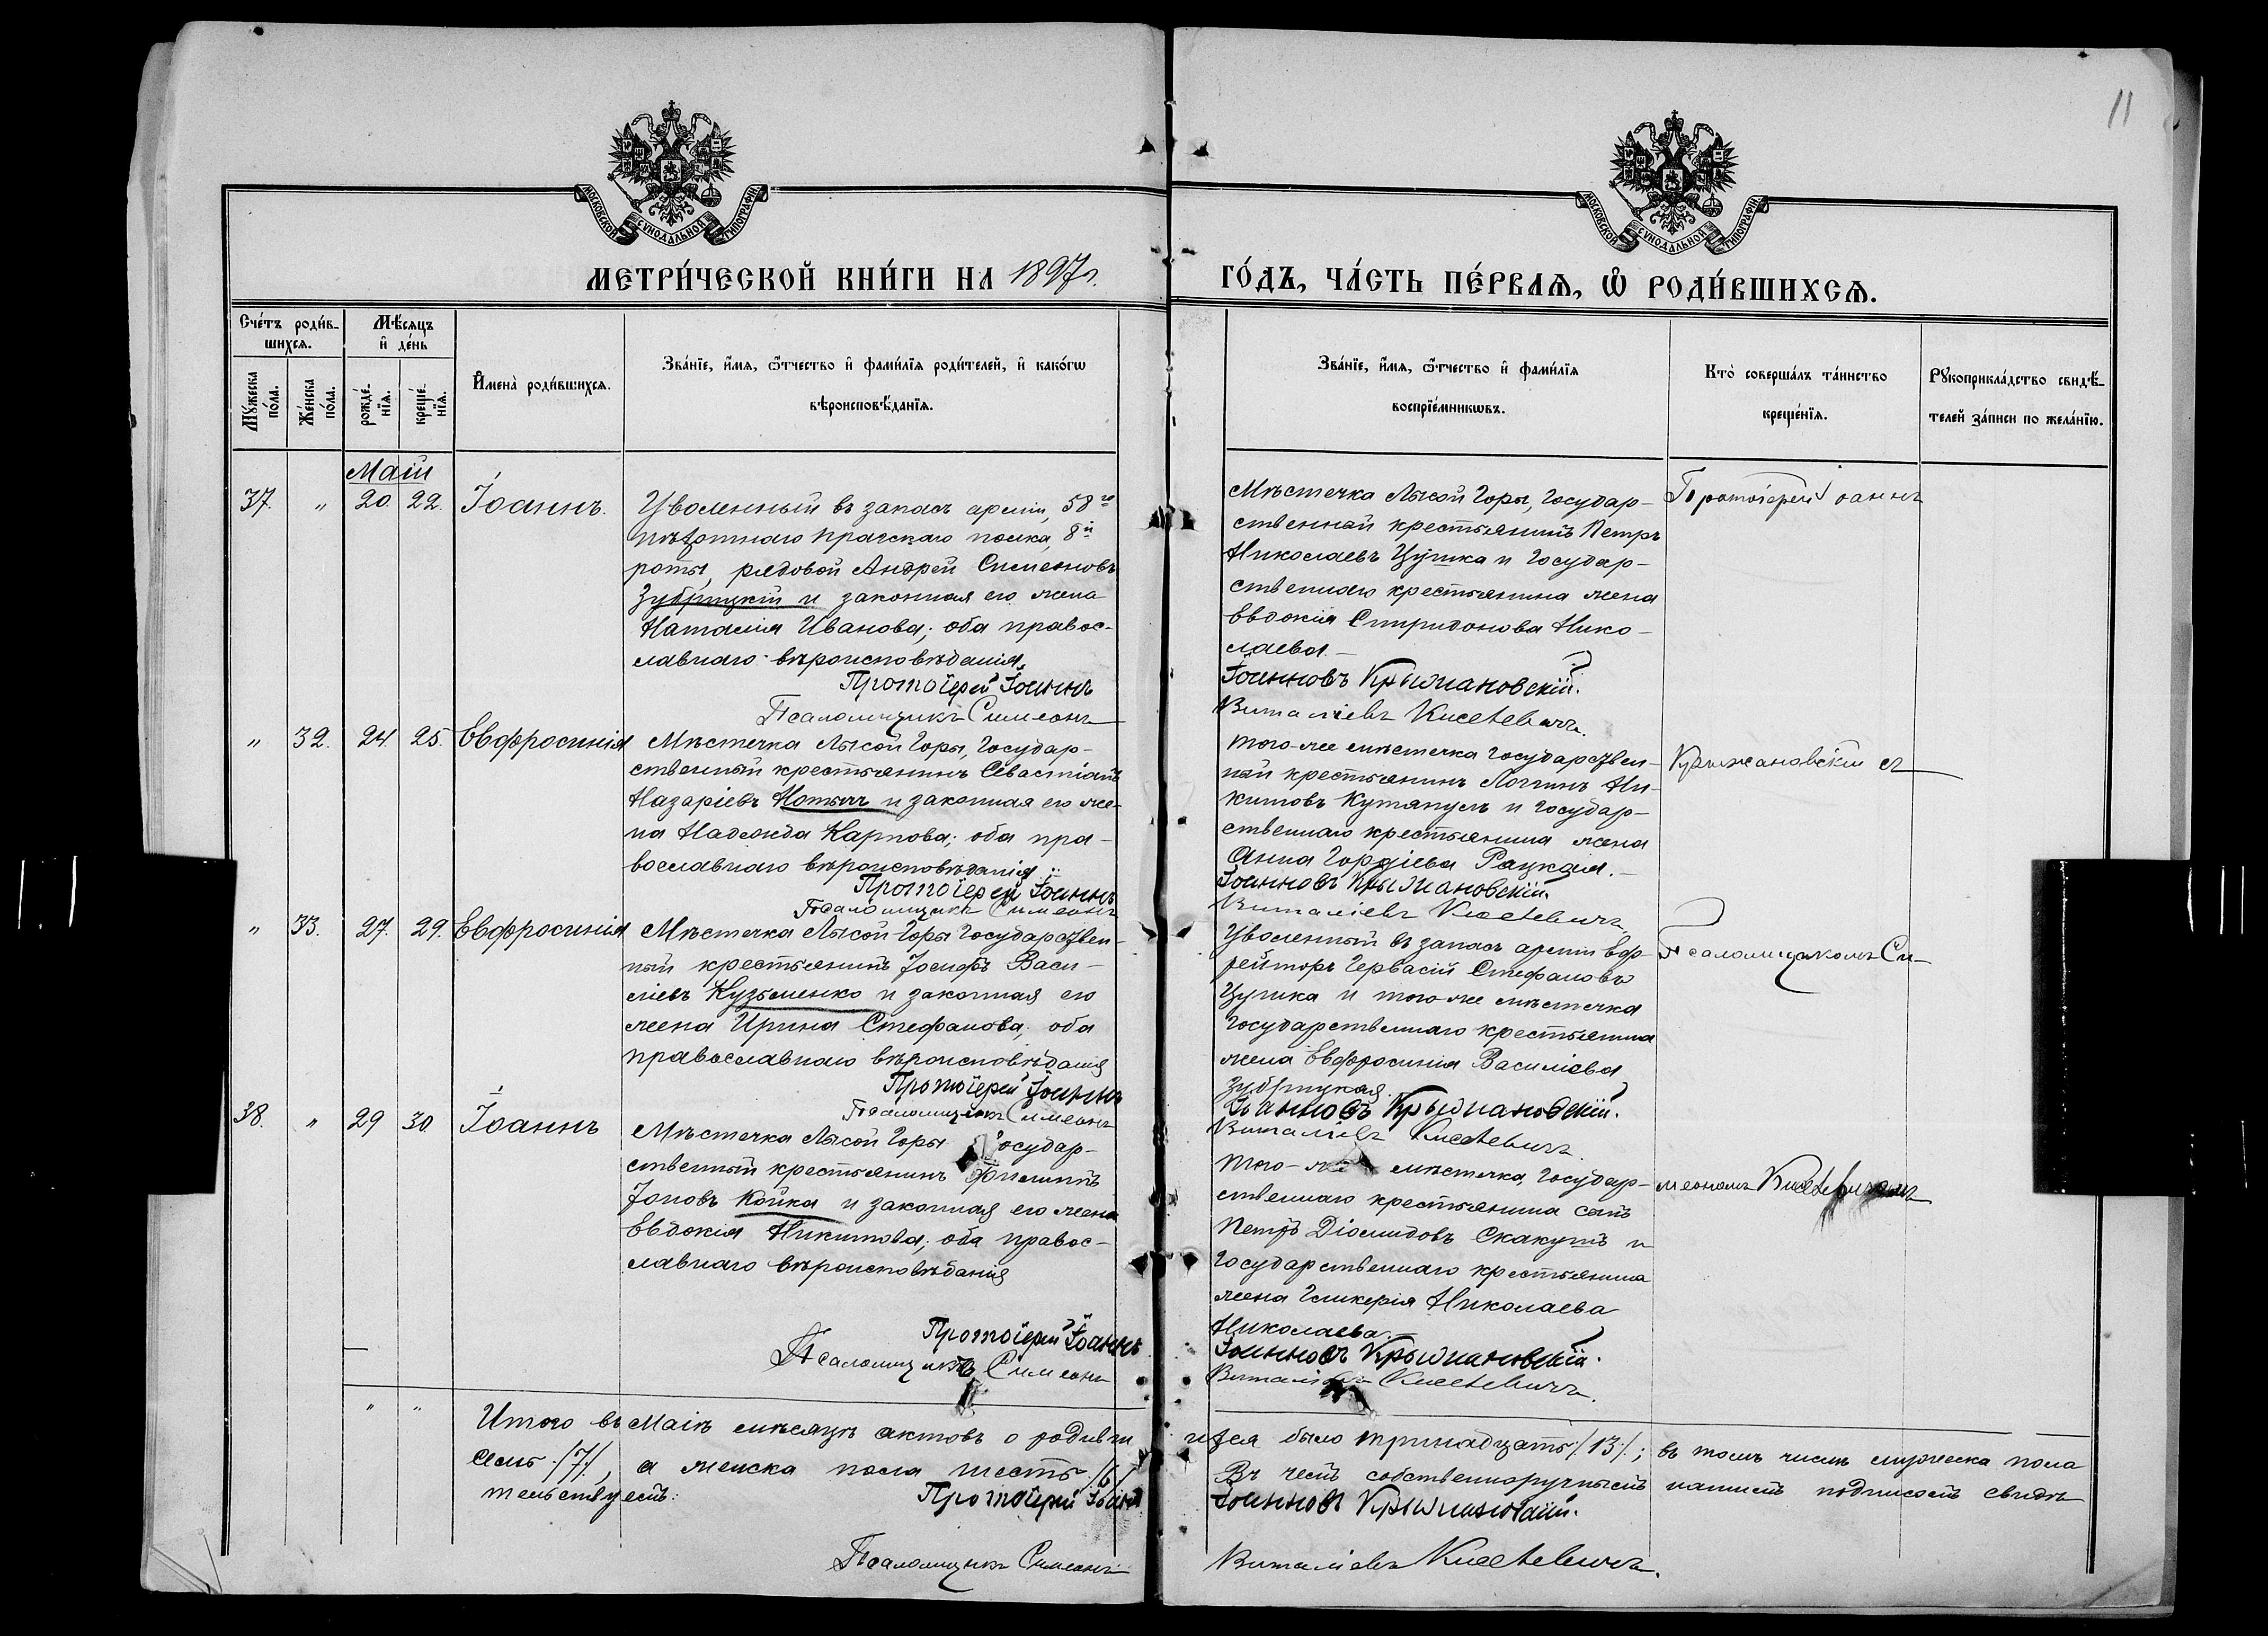 11
МОСКОВСКОЙ СѴНОДАЛЬНОЙ ТИПОГРАФІИ
МОСКОВСКОЙ СѴНОДАЛЬНОЙ ТИПОГРАФІИ
МЕТРИ́ЧЕСКОЙ КНИ́ГИ НА 1897 г.
ГО́ДЪ, ЧА́СТЬ ПЕ́РВАѦ, Ѡ РОДИ́ВШИХСѦ.
Сче́тъ роди́в-
шихсѧ.
Мꙋ́жеска по́ла.
Же́нска по́ла.
Мѣ́сѧцъ и҆ де́нь
рожде́-
нїѧ.
креще́-
нїѧ.
И҆мена̀ роди́вшихсѧ.
Зва́нїе, и҆́мѧ, ѻ҆́тчество и҆ фами́лїѧ роди́телей, и҆ како́гѡ
вѣроисповѣ́данїѧ.
Зва́нїе, и҆́мѧ, ѻ҆́тчество и҆ фами́лїѧ
воспрїе́мникѡвъ.
Кто̀ соверша́лъ та́инство
креще́нїѧ.
Рꙋкоприкла́дство свидѣ́-
телей за́писи по жела́нїю.
Маій
37. " 20. 22. Іоаннъ.
Уволенный въ запасъ арміи, 58го
пѣхотнаго Прагскаго полка, 8й
роты, рядовой Андрей Симеоновъ
Зубрицкій и законная его жена
Наталія Иванова; оба правос-
лавнаго вѣроисповѣданія.
Протоіерей Іоаннъ
Псаломщикъ Симеонъ
Мѣстечка Лысой Горы, Государ-
ственный крестьянинъ Петръ
Николаевъ Цупка и Государ-
ственнаго крестьянина жена
Евдокія Спиридонова Нико-
лаева.
Іоанновъ Крыжановскій.
Виталіевъ Киселевичъ.
Протоіерей Іоаннъ
" 32. 24. 25. Евфросинія
Мѣстечка Лысой Горы, Государ-
ственный крестьянинъ Севастіанъ
Назаріевъ и законная его же-
на Надежда Карпова; оба пра-
вославнаго вѣроисповѣданія.
Протоіерей Іоаннъ
Псаломщикъ Симеонъ
Того-же мѣстечка Государствен-
ный крестьянинъ Логинъ Ни-
китовъ и Государ-
ственнаго крестьянина жена
Анна Гордіева Рацкая.
Іоанновъ Крыжановскій.
Виталіевъ Киселевичъ.
Крыжановскій съ
" 33. 27. 29. Евфросинія
Мѣстечка Лысой Горы Государствен-
ный крестьянинъ Іосифъ Васи-
ліевъ Кузьменко и законная его
жена Ирина Стефанова; оба
православнаго вѣроисповѣданія
Протоіерей Іоаннъ
Псаломщикъ Симеонъ
Уволенный въ запасъ арміи Еф-
рейторъ Гервасій Стефановъ
Цупка и того-же мѣстечка
Государственнаго крестьянина
жена Евфросинія Василіева
Зубрицкая.
Іоанновъ Крыжановскій.
Виталіевъ Киселевичъ.
Псаломщикомъ Си-
38. " 29 30. Іоаннъ
Мѣстечка Лысой Горы Государ-
ственный крестьянинъ Филиппъ
Іоновъ Койка и законная его жена
Евдокія Никитова; оба правос-
лавнаго вѣроисповѣданія
Протоіерей Іоаннъ
Псаломщикъ Симеонъ
Того-же мѣстечка, Государ-
ственнаго крестьянина сынъ
Петръ Діомидовъ Скакунъ и
Государственнаго крестьянина
жена Гликерія Николаева
Николаева.
Іоанновъ Крыжановскій.
Виталіевъ Киселевичъ.
меономъ Киселевичемъ
" "
Итого въ Маіѣ мѣсяцѣ актовъ о родивши хся было тринадцать /13/; въ томъ числѣ мужеска пола
семь /7/, а женска пола шесть /6/ Въ чемъ собственноручнымъ нашимъ подписомъ свидѣ-
тельствуемъ: Протоіерей Іоаннъ Іоанновъ Крыжановскій.
Псаломщикъ Симеонъ Виталіевъ Киселевичъ.